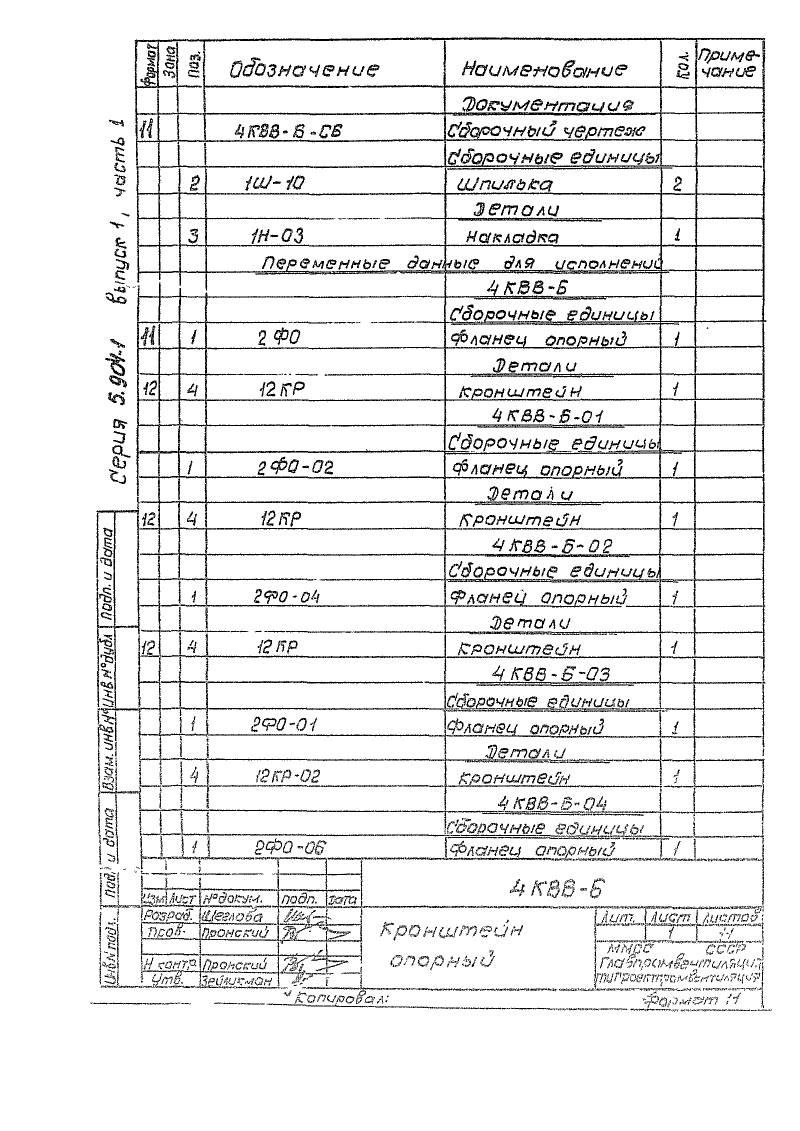 Формат Зона Поз. Обозначение Наименование Кол. Приме-
чание
Документация
11 4КВВ-Б-СБ Сборочный чертеж
Сборочные единицы
2 1Ш-10 Шпилька 2
Детали
3 1Н-03 Накладка 1
Переменные данные для исполнений
4КВВ-Б
Сборочные единицы
11 1 2ФО Фланец опорный 1
Детали
12 4 12КР Кронштейн 1
4КВВ-Б-01
Сборочные единицы
1 2ФО-02 Фланец опорный 1
Детали
12 4 12КР Кронштейн 1
4КВВ-Б-02
Сборочные единицы
1 2ФО-04 Фланец опорный 1
Детали
12 4 12КР Кронштейн 1
4КВВ-Б-03
Сборочные единицы
1 2ФО-01 Фланец опорный 1
Детали
4 12КР-02 Кронштейн 1
4КВВ-Б-04
Сборочные единицы
1 2ФО-06 Фланец опорный 1
Серия 5.904-1 выпуск 1, часть 1
Подп. и дата
Инв.N°дубл
Взам.инв.N°
Подп. и дата
Инв.N подл.
Изм Лист N°докум. подп. дата
4КВВ-Б
Разраб. Щеглова
Пров. Пронский
Н контр Пронский
Утв. Зейликман
Кронштейн
опорный
Лит. Лист Листов
1
ММСС СССР
Главпромвентиляция
Копировал:
Формат 11